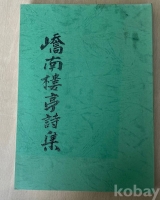 嶠南樓亭詩集
kobay